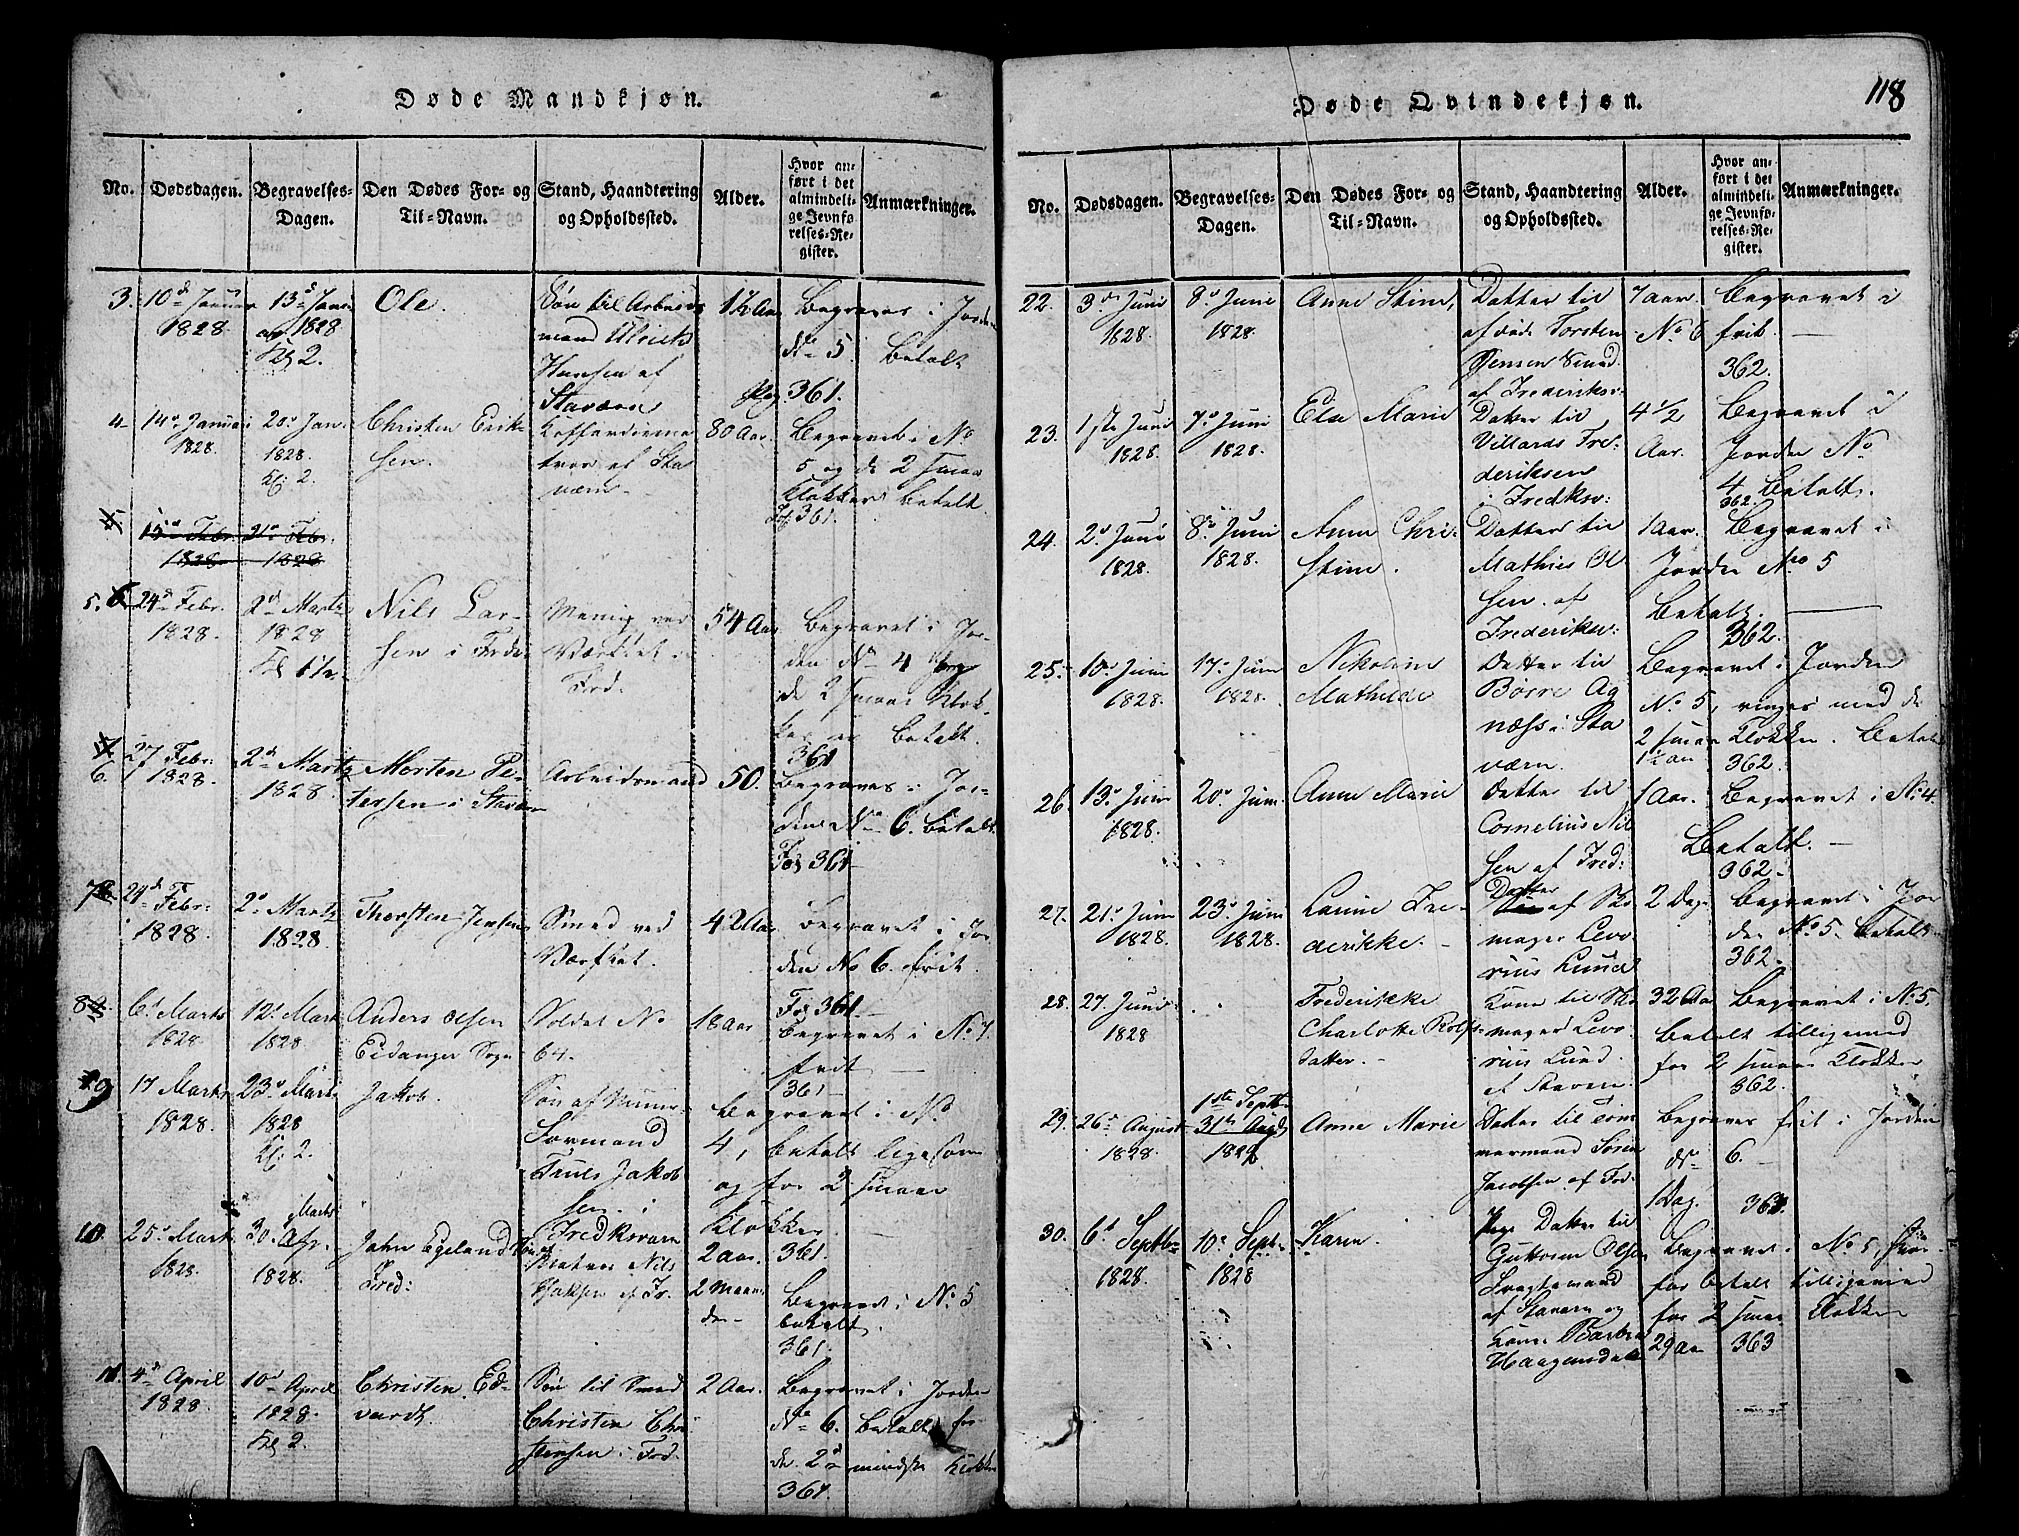 Døde Mandkjøn.
No.
Dødsdagen.
Begravelses-
Dagen.
Den Dødes For- og
Til-Navn.
Stand, Haandtering
og Opholdssted.
Alder.
Hvor an-
ført i det
almindeli-
ge Jevnfø-
relses-Re-
gister.
Anmærkninger.
3. 10d Januar
1828
13d Janu
1828
Kl 2.
Ole.
Søn til Arbeids
mand Ulrich
Hansen af
Staværn
1½ Aar
Begraves i Jorden
No 5. betalt
361.
4. 14d Januar
1828.
20d Jan.
1828.
Kl. 2
Christen Erik-
sen.
af Sta
værn
80 Aar.
Begravet i No
5 og de 2 smaa
Klokker betalt
361.
15d Febr.
1828
21d Febr.
1828
5. 24d Febr.
1828.
2d Marts
1828
Kl 1½
Nils Lar-
sen i Frede
Menig ved
Værftet i
Fred.
54 Aar
Begravet i Jor-
den No 4
de 2 smaae Klok-
ker betalt.
361
6. 27 Febr.
1828.
2d Marts
1828
Morten Pe-
tersen i Stavern
Arbeidsmand
50.
Begraves i Jor-
den No 6. betalt
Fol 361
7 24d Febr.
1828.
2d Marts
1828.
Thorsten Jensen
Smed ved
Værftet.
42 Aar
Begravet i Jor
den No 6. frit.
Fol 361
8 6d Marts
1828
12d Mart
1828
Anders Olsen
Eidanger Sogn
Soldat No
64.
18 Aar
Begravet i No 7.
frit
361
9 17 Marts
1828.
23d Marts
1828
Kl. 2.
Jakob.
Søn af Tømer-
formand
Truls Jakob
sen i
Fredksværn
2 Aar.
Begravet i No
4, betalt ligesom
og for 2 smaae
Klokker
361.
10. 25d Mart
1828.
30. Marts
1828.
John Egeland
Fred:
Nils
Isaksen af Fr.
2 Maane
der
Begravet i No 5
betalt.
361.
11. 4d April
1828.
10d April
1828.
Kl 2.
Christen Ed-
vardt.
Søn til Smed
Christen Chri
stensen i Fred.
2 Aar.
Begravet i Jorden
No 6. betalt for
de 2 mindste Klokker
361.
118
Døde Qvindekjøn.
No.
Dødsdagen.
Begravelses-
Dagen.
Den Dødes For- og
Til-Navn.
Stand, Haandtering
og Opholdssted.
Alder.
Hvor an-
ført i det
almindeli-
ge Jevnfø-
relses-Re-
gister.
Anmærkninger.
22. 3de Juni
1828.
8d Juni
1828.
Anne Stine,
Datter til
afdøde Torsten
Jensen Smed
af Frederiksv:
7 Aar.
No 6
Begravet i
frit.
362.
23. 1ste Juni
1828.
7d Juni
1828.
Ela Marie
Datter til
Villards Fre-
deriksen
i Fredksv:
4½
Aar.
Begravet i
Jorden No
4 Betalt.
362.
24. 2d Juni
1828.
8d Juni
1828.
Anne Chri-
stine.
Datter til
Mathies Ol
sen. af
Frederiksv:
1 Aar.
Begravet i
Jorden No 5
Betalt.
362.
25. 10d Juni
1828.
17d Juni
1828.
Nikoline
Mathilde
Datter til
Børre Ag
næss i Sta
værn.
Begravet i Jorden
No 5, ringes med de
2 smaae Klokker. Betalt
1½ aar
362.
26. 13d Juni
1828.
20d Juni.
Anne Marie
Datter til
Cornelius Nil
sen af Fred:
1 Aar.
Begravet i No 4.
Betalt.
362.
27. 21d Juni
1828.
23d Juni
1828.
Lanine Fre-
derikke.
Datter af Sko
mager Levo
rius Lund
2 Dage
Begravet i Jor
den No 5. betalt.
362.
28. 27. Juni
1828
Frederikke
Charlotte Rolfs-
datter.
Kone til Sko
mager Levo
rius Lund.
af Staven.
32 Aar
Begravet i No 5.
betalt tilligemed
for 2 smaae Klokker
362.
29. 26d August
1828.
1ste Septb.
31te Augst
1828
Anne Marie
Datter til Töm
mermand Sören
Jacobsen af Fr.
1 Dag.
Begraves frit i Jorden
No 6.
363.
30. 6d Septbr
1828.
10d Septbr
1828
Karen.
Pige Datter til
Guttorm Olsen
Fragtemand
af Stavern og
Kone Barbra
Haagensdatt
29 Aar
Begravet i No 5, hvor-
for betalt tilligemed
for 2 smaae Klokker
363